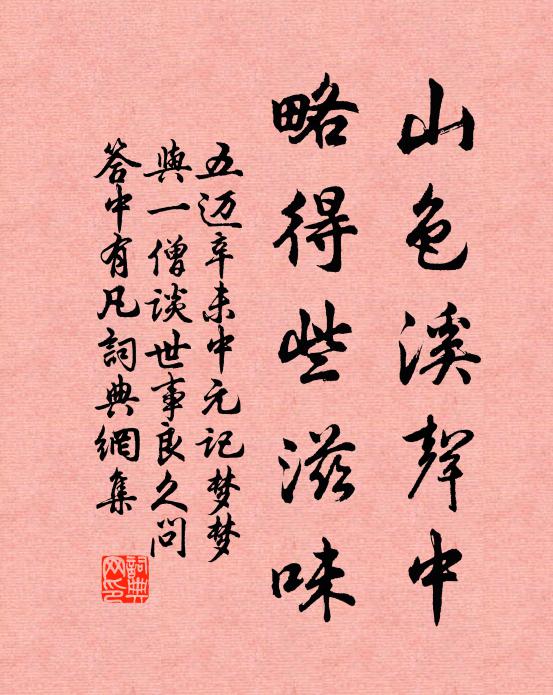 山色溪聲中
略得些滋味
五迈辛未中元记梦梦
與一僧談世事良久问
答中有凡詞典網集
詞典
网印